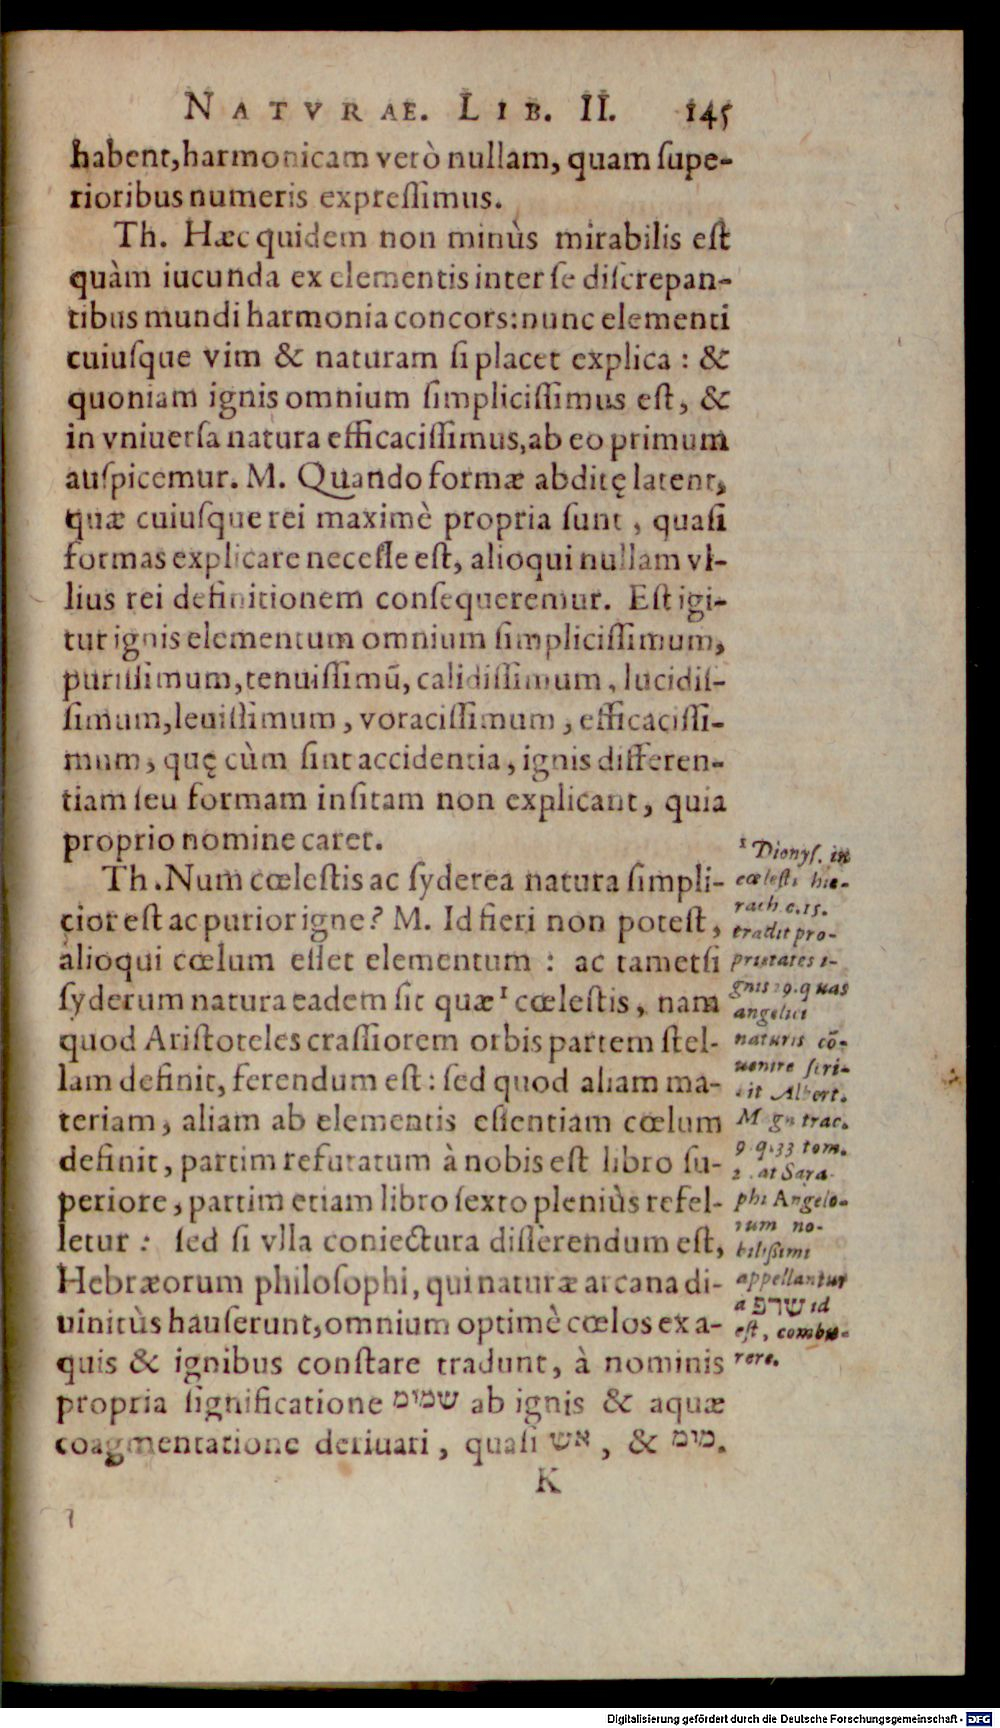 NATVRAE. LIB. II. 145
habent, harmonicam verò nullam, quam supe-
rioribus numeris expressimus.
Th. Hæc quidem non minùs mirabilis est
quàm iucunda ex elementis inter se discrepan-
tibus mundi harmonia concors: nunc elementi
cuiusque vim & naturam si placet explica: &
quoniam ignis omnium simplicissimus est, &
in vniuersa natura efficacissimus, ab eo primum
auspicemur. M. Quando formæ abditę latent,
quæ cuiusque rei maximè propria sunt, quasi
formas explicare necesse est, alioqui nullam vl-
lius rei definitionem consequeremur. Est igi-
tur ignis elementum omnium simplicissimum,
purissimum, tenuissimū, calidissimum, lucidis-
simum, leuissimum, voracissimum, efficacissi-
mum, quę cùm sint accidentia, ignis differen-
tiam seu formam insitam non explicant, quia
proprio nomine caret.
Th. Num cœlestis ac syderea natura simpli-
cior est ac purior igne? M. Id fieri non potest,
alioqui cœlum esset elementum: ac tametsi
syderum natura eadem sit quæ ¹ cœlestis, nam
quod Aristoteles crassiorem orbis partem stel-
lam definit, ferendum est: sed quod aliam ma-
teriam, aliam ab elementis essentiam cœlum
definit, partim refutatum à nobis est libro su-
periore, partim etiam libro sexto pleniùs refel-
letur: sed si vlla coniectura disserendum est,
Hebræorum philosophi, qui naturæ arcana di-
uinitùs hauserunt, omnium optimè cœlos ex a-
quis & ignibus constare tradunt, à nominis
propria significatione שמים ab ignis & aquæ
coagmentatione deriuati, quasi אש, & מים.
K
¹ Dionys. in
cœlesti hie-
rach c.15.
tradit pro-
prietates i-
gnis 29. quas
angelici
naturis cō-
uenire scri-
bit Albert.
Mgn trac.
9 q.33 tom.
2. at Sara-
phi Angelo-
rum no-
bilissimi
appellantur
a שרפ id
est, combu-
rere.
Digitalisierung gefördert durch die Deutsche Forschungsgemeinschaft - DFG